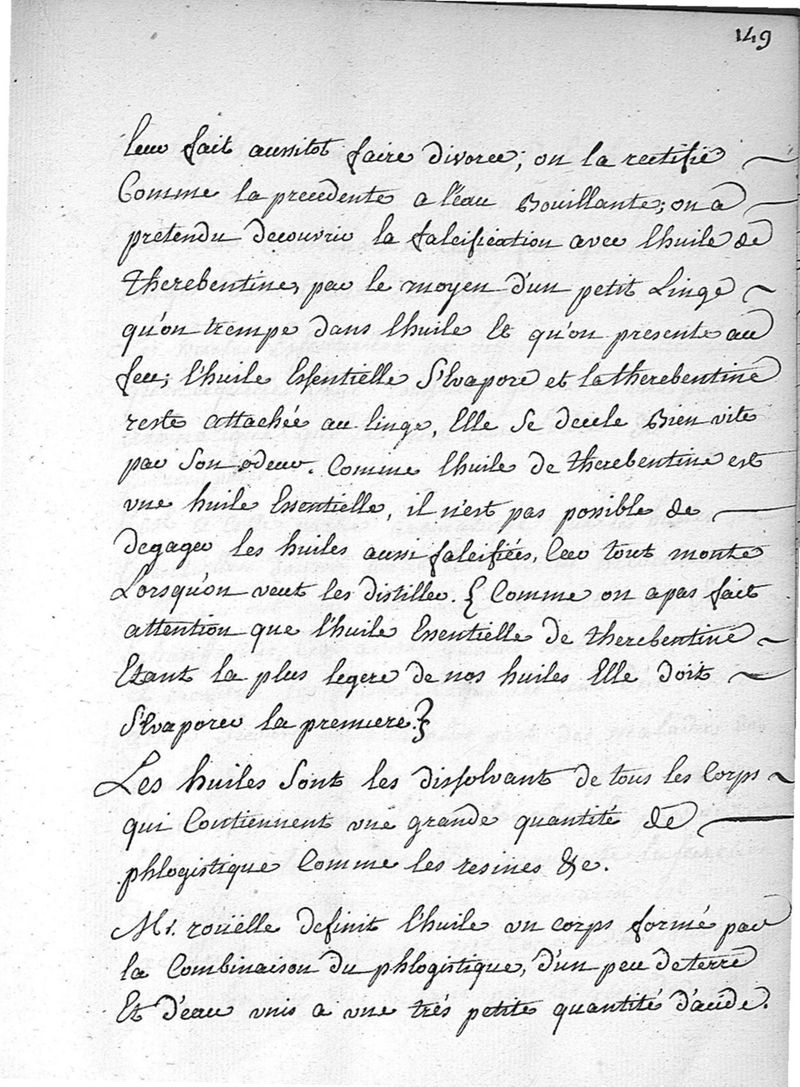 149
leur fait aussitot faire divorce; on la rectifie
Comme la precedente a l'eau Bouillante; on a
pretendu decouvrir la falcification avec l'huile de
therebentine, par le moyen d'un petit Linge
qu'on trempe dans l'huile Et qu'on presente au
feu; l'huile Essentielle S'Evapore et la therebentine
reste attachée au linge, Elle Se decele Bien vite
par Son odeur. Comme l'huile de therebentine est
une huile Essentielle, il n'est pas possible de
degager les huiles aussi falcifiées, Car tout monte
Lorsqu'on veut les distiller. { Comme on a pas fait
attention que l'huile Essentielle de therebentine
Etant la plus legere de nos huiles Elle doit
S'Evaporer la premiere. }
Les huiles Sont les dissolvant de tous les Corps
qui Contiennent une grande quantité de
phlogistique Comme les resines &c.
Mr. rouëlle definit l'huile un corps formé par
la Combinaison du phlogistique, d'un peu de terre
Et d'eau unis a une trés petite quantité d'acide.